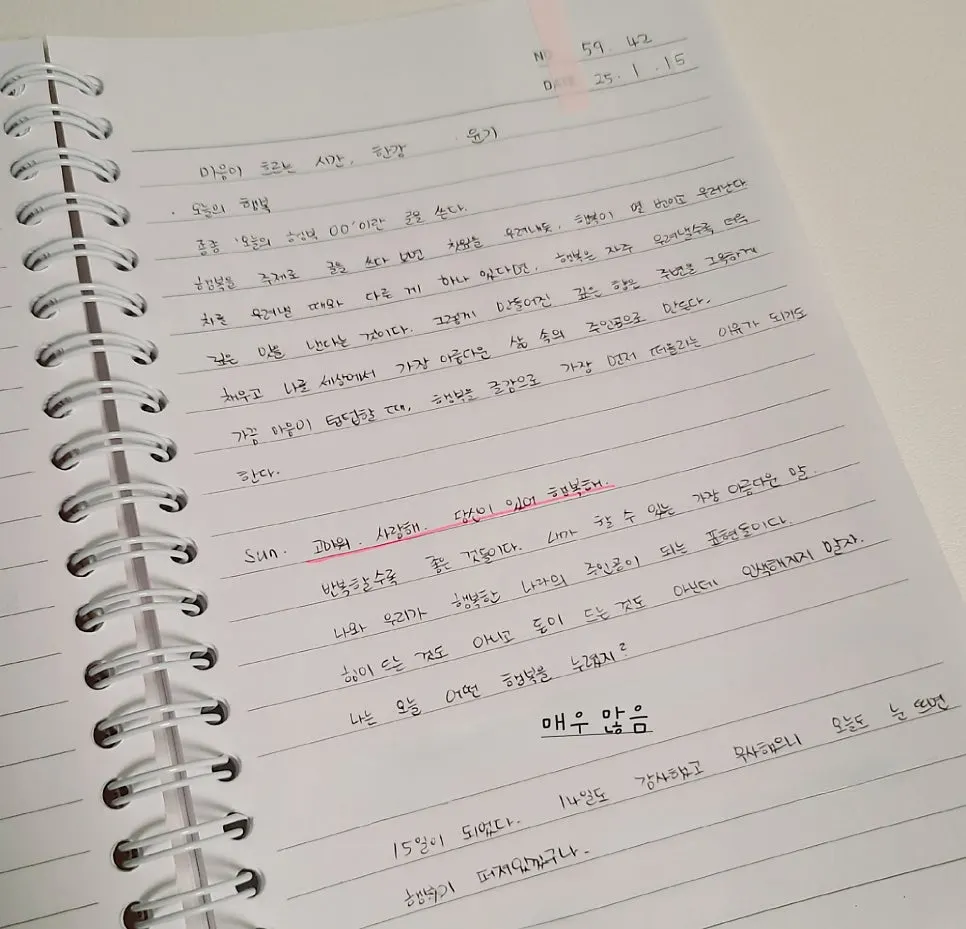 NO 59. 42
DATE 25. 1. 15
마음이 흐르는 시간, 한강 · 윤기
· 오늘의 행복
종종 '오늘의 행복 00'이란 글을 쓴다.
행복을 주제로 글을 쓰다 보면 차잎을 우려내듯, 행복이 몇 번이고 우러난다
차를 우려낼 때와 다른 게 하나 있다면, 행복은 자주 우려낼수록 더욱
깊은 맛을 낸다는 것이다. 그렇게 만들어진 깊은 향은 주변을 그윽하게
채우고 나를 세상에서 가장 아름다운 삶 속의 주인공으로 만든다.
가끔 마음이 텁텁할 때, 행복을 글감으로 가장 먼저 떠올리는 이유가 되기도
한다.
Sun. 고마워. 사랑해. 당신이 있어 행복해.
반복할수록 좋은 것들이다. 내가 할 수 있는 가장 아름다운 말.
나와 우리가 행복한 나라의 주인공이 되는 표현들이다.
힘이 드는 것도 아니고 돈이 드는 것도 아닌데 인색해지지 말자.
나는 오늘 어떤 행복을 누렸지?
매우 많음
15일이 되었다. 14일도 감사했고 무사했으니 오늘도 눈 뜨면
행복이 퍼져있겠구나.